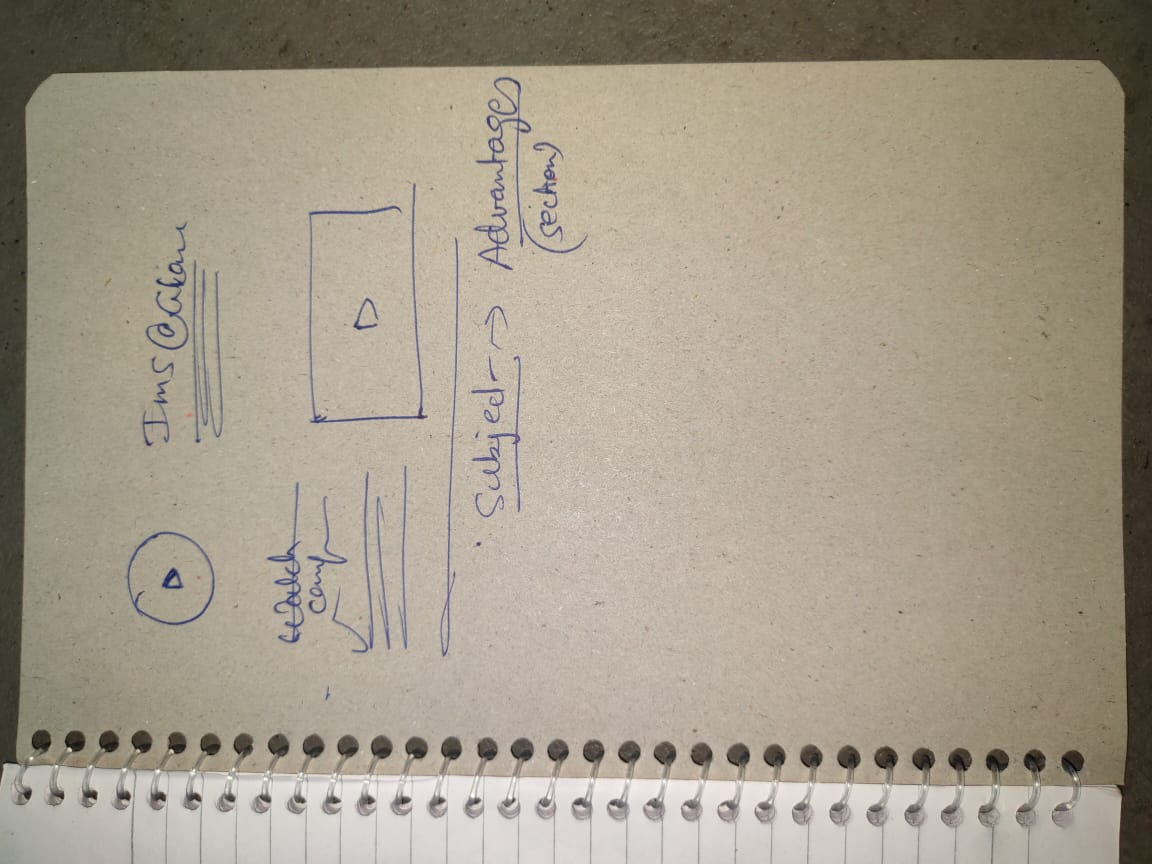 Ims @
Watch
Subject → Advantages
(section)